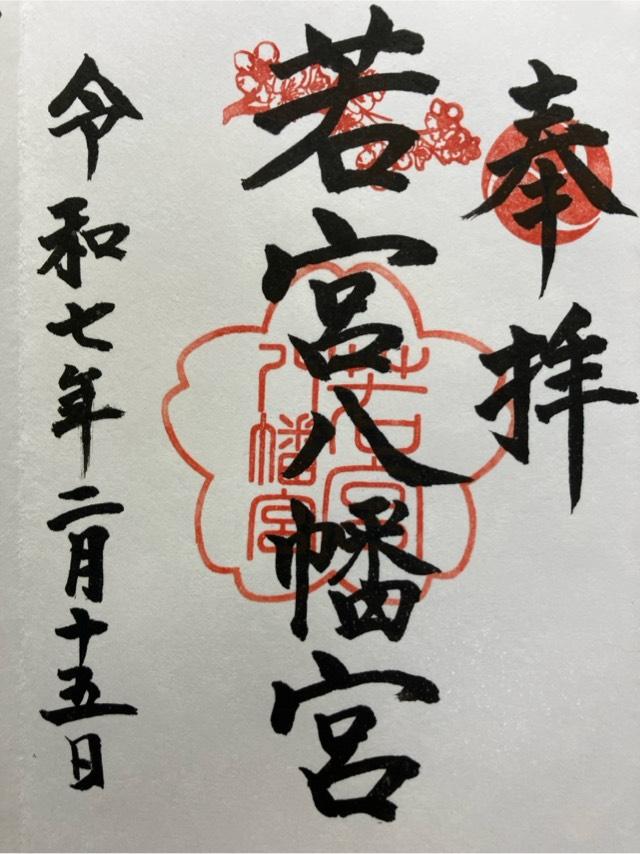 奉拝
若宮八幡宮
若宮
八幡宮
令和七年二月十五日